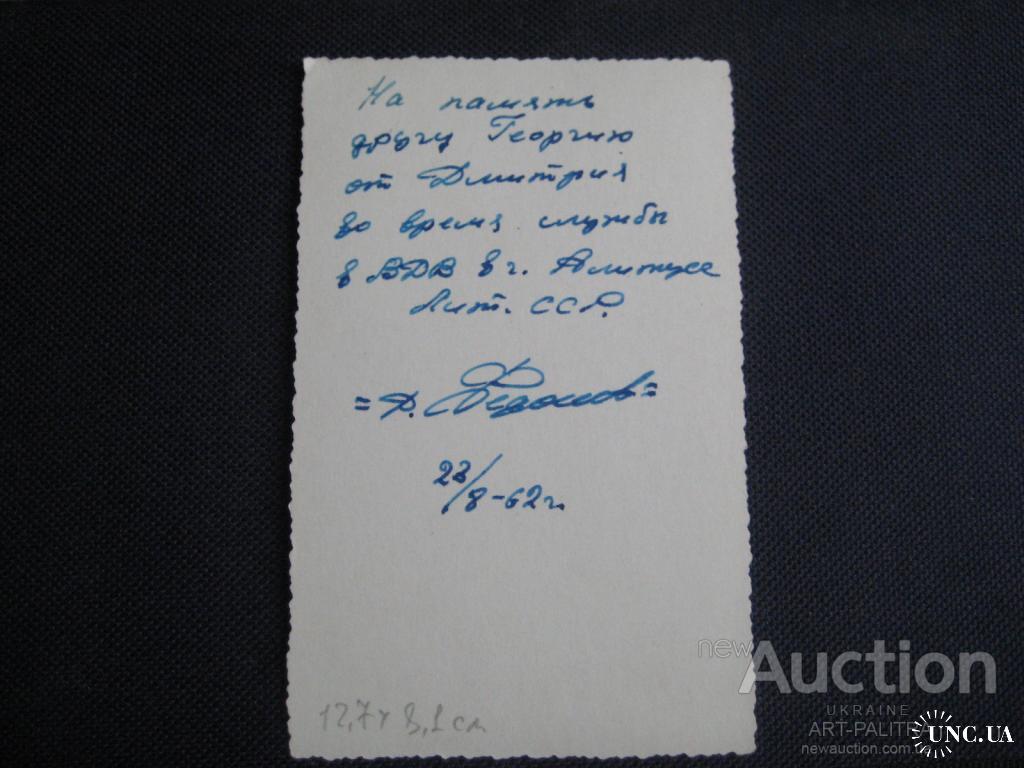 На память
другу Георгию
от Дмитрия
во время службы
в ВДВ в г. Алитусе
Лит. ССР.
= Д. Федосов =
23/8-62 г.
12,7 x 8,1 см
newAuction
UKRAINE
ART-PALITRA
newauction.com.ua
UNC.UA